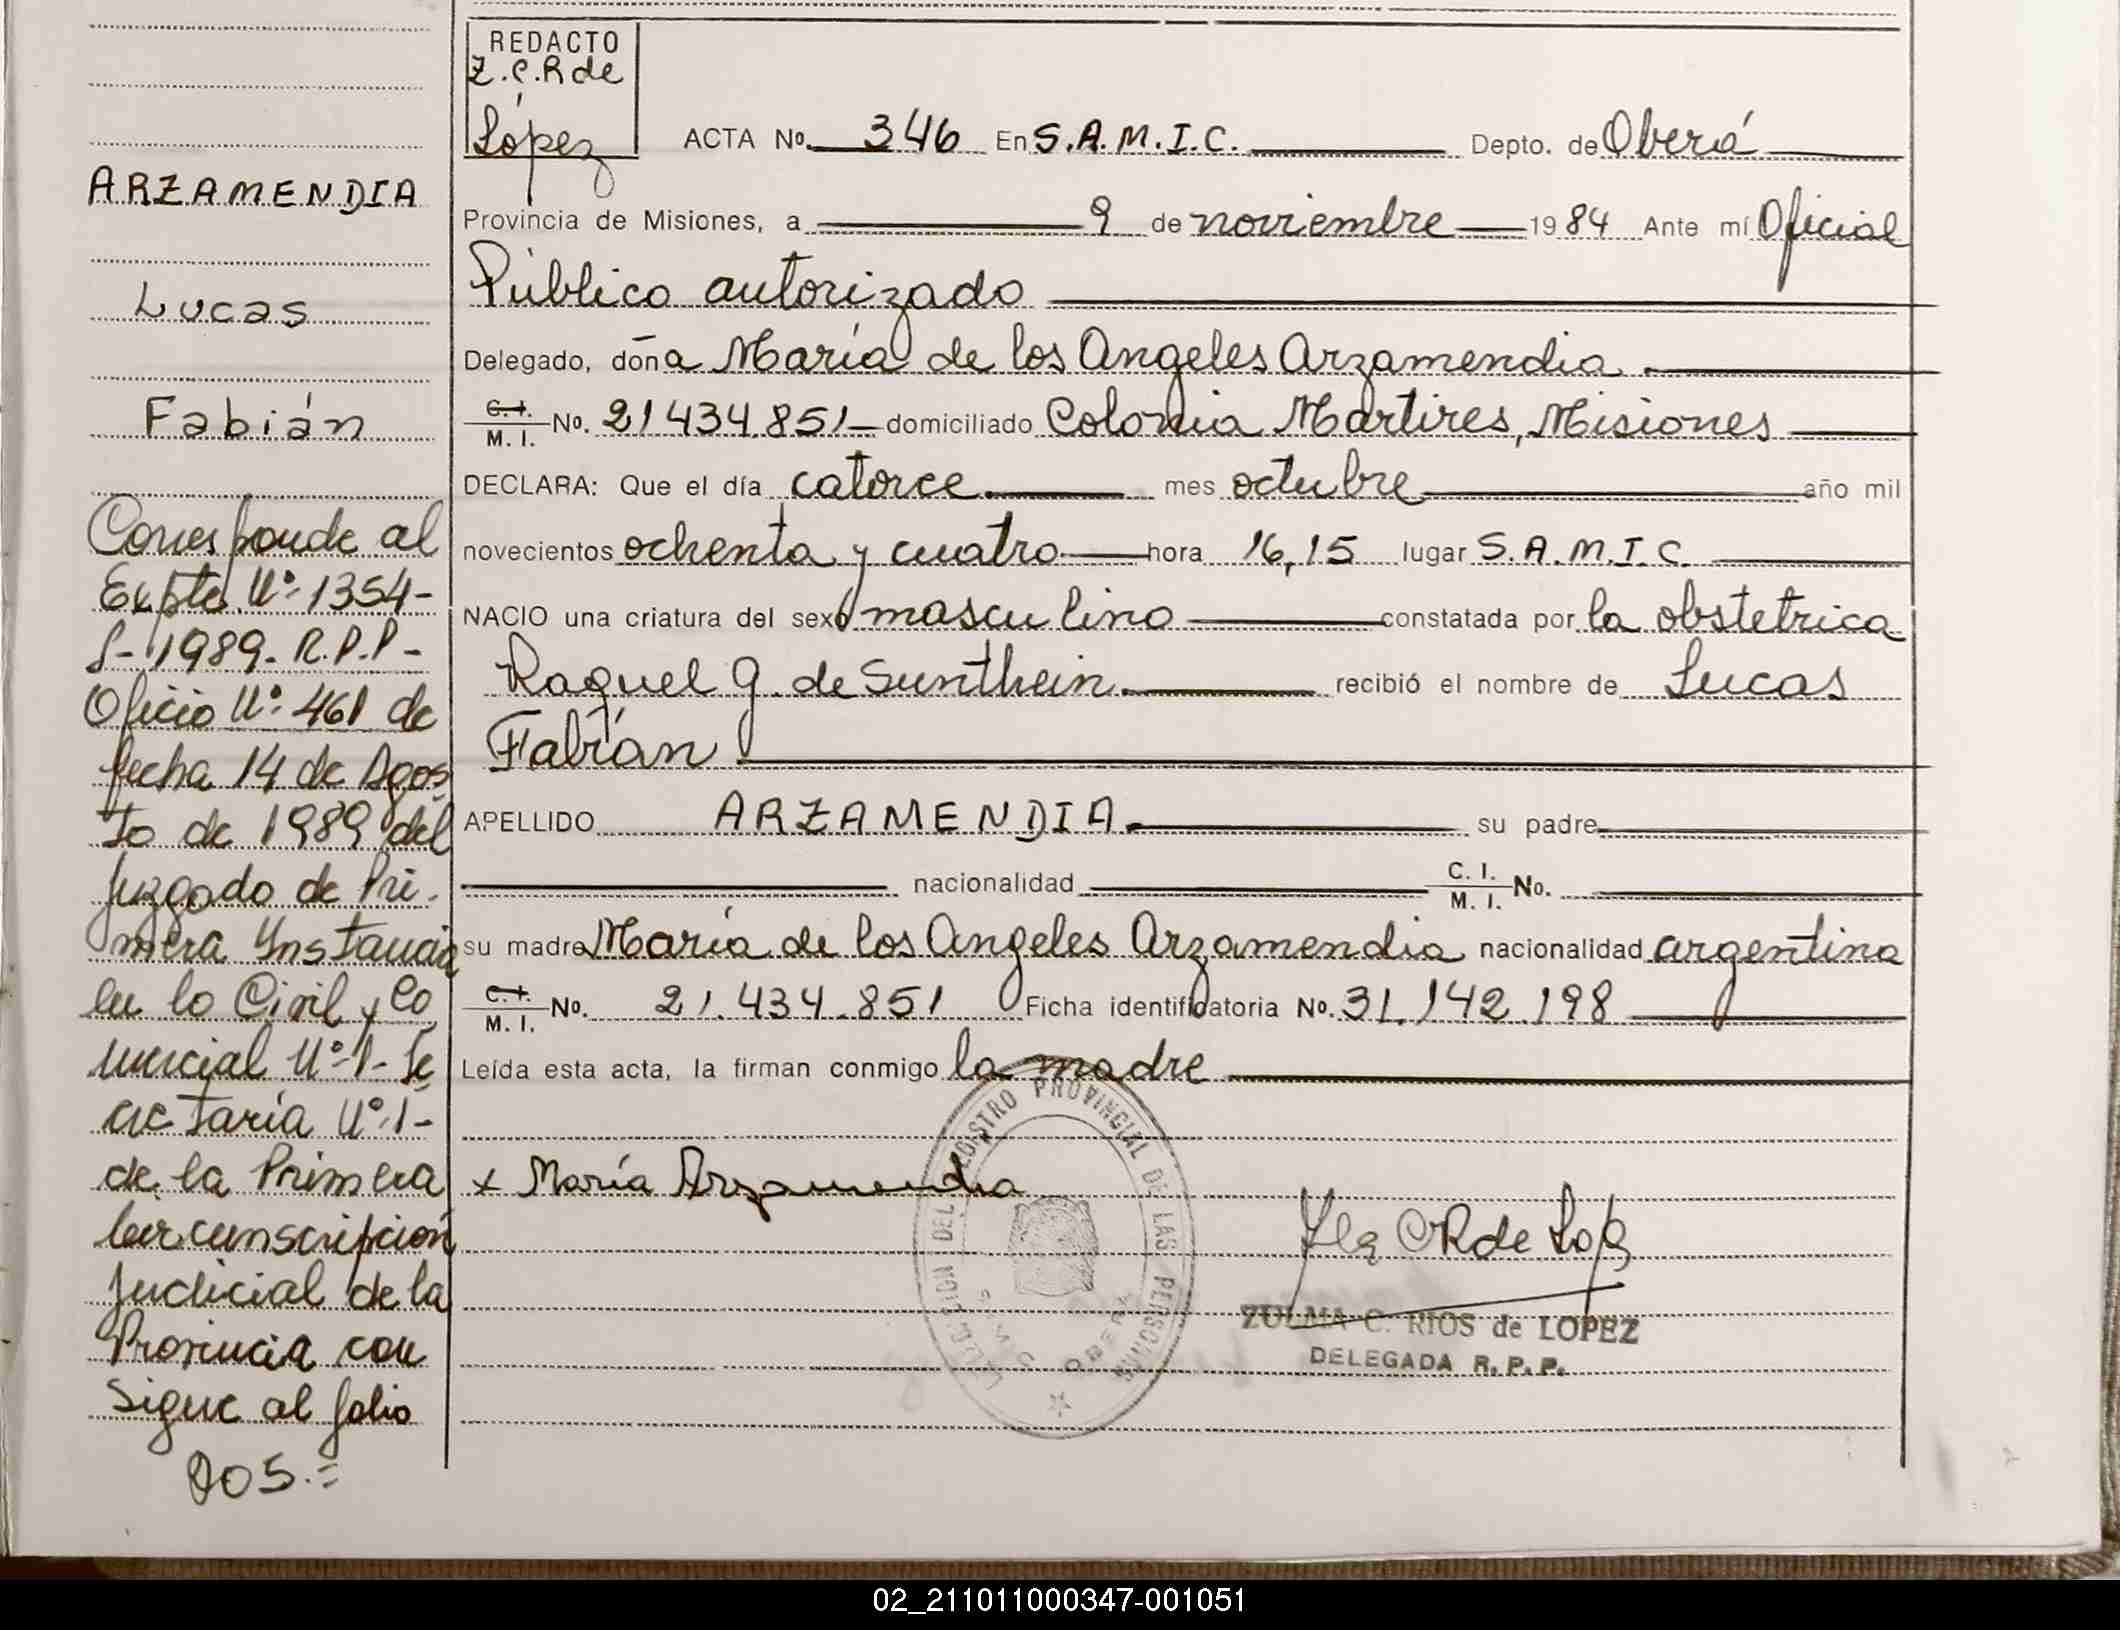 REDACTO
Z.C.R de
López
ACTA No. 346 En S.A.M.I.C. Depto. de Oberá
Provincia de Misiones, a 9 de noviembre 1984 Ante mí Oficial
Público autorizado
Delegado, doña María de los Angeles Arzamendia.
C.I. M.I. No. 21434.851 domiciliado Colonia Martires, Misiones
DECLARA: Que el día catorce mes octubre año mil
novecientos ochenta y cuatro hora 16,15 lugar S.A.M.I.C.
NACIO una criatura del sexo masculino constatada por la obstetrica
Raquel G. de Sunthein. recibió el nombre de Lucas
Fabián
APELLIDO ARZAMENDIA. su padre
nacionalidad C.I. M.I. No.
su madre María de los Angeles Arzamendia nacionalidad argentina
C.I. M.I. No. 21.434.851 Ficha identificatoria No. 31.142.198
Leída esta acta, la firman conmigo la madre
x María Arzamendia
DEL REGISTRO PROVINCIAL DE LAS PERSONAS
ZULMA C. RIOS de LOPEZ
DELEGADA R.P.P.
ARZAMENDIA
Lucas
Fabián
Corresponde al
Expte. Nº 1354-
S-1989. R.P.P-
Oficio Nº 461 de
fecha 14 de Agos-
to de 1989 del
Juzgado de Pri-
mera Instancia
en lo Civil y Co
mercial Nº 1- Se
cretaría Nº 1-
de la Primera
Circunscripción
Judicial de la
Provincia con
sigue al folio
DOS.=
02_211011000347-001051